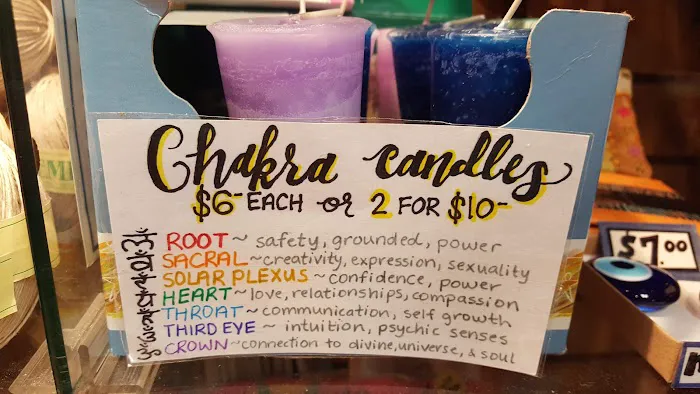 Chakra candles
$6- EACH or 2 FOR $10-
ROOT ~ safety, grounded, power
SACRAL ~ creativity, expression, sexuality
SOLAR PLEXUS ~ confidence, power
HEART ~ love, relationships, compassion
THROAT ~ communication, self growth
THIRD EYE ~ intuition, psychic senses
CROWN ~ connection to divine, universe, & soul
$7.00